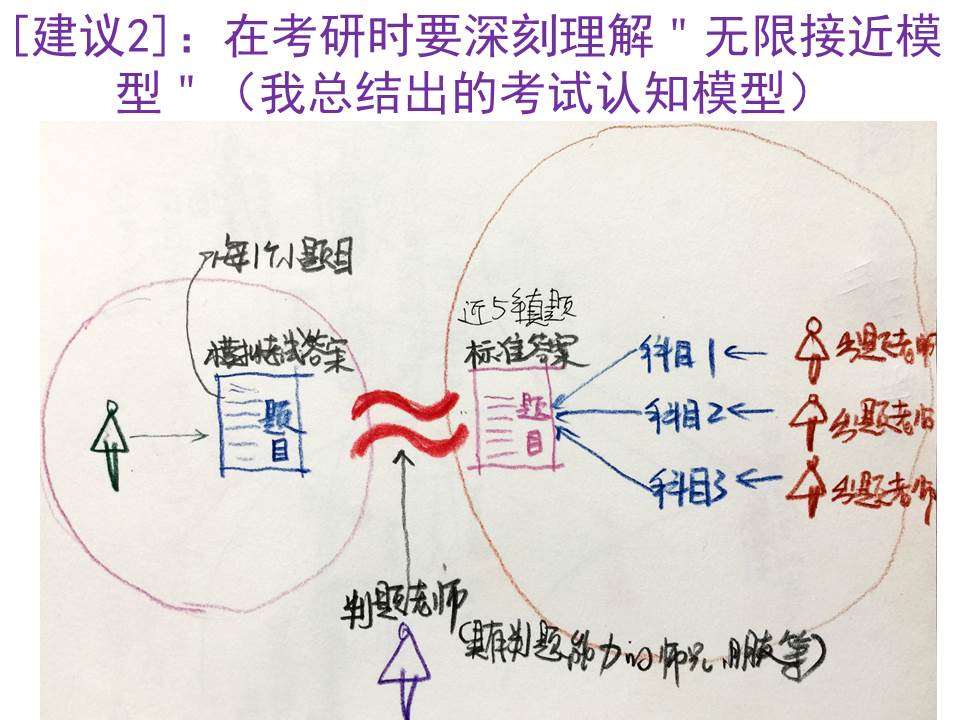 [建议2]：在考研时要深刻理解＂无限接近模
型＂（我总结出的考试认知模型）
每1个小题目
模拟考试答案
题
目
近5年真题
标准答案
题
目
科目1
出题老师
科目2
出题老师
科目3
出题老师
判题老师
(具有判题能力的师兄、朋友等)